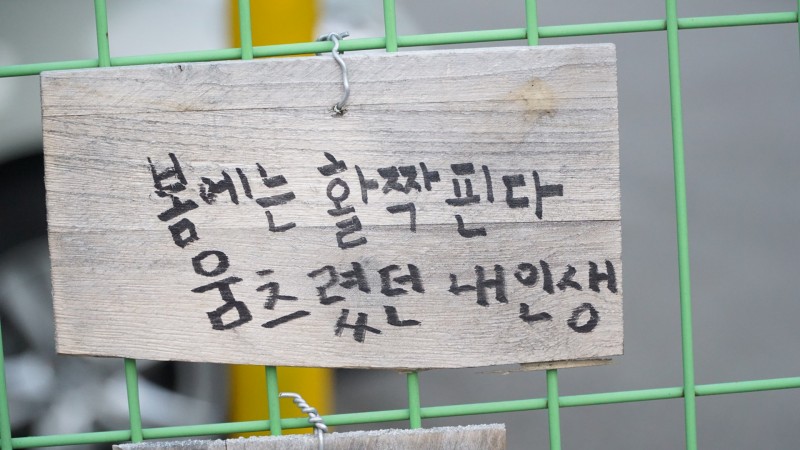 봄에는 활짝 핀다
움츠렸던 내인생